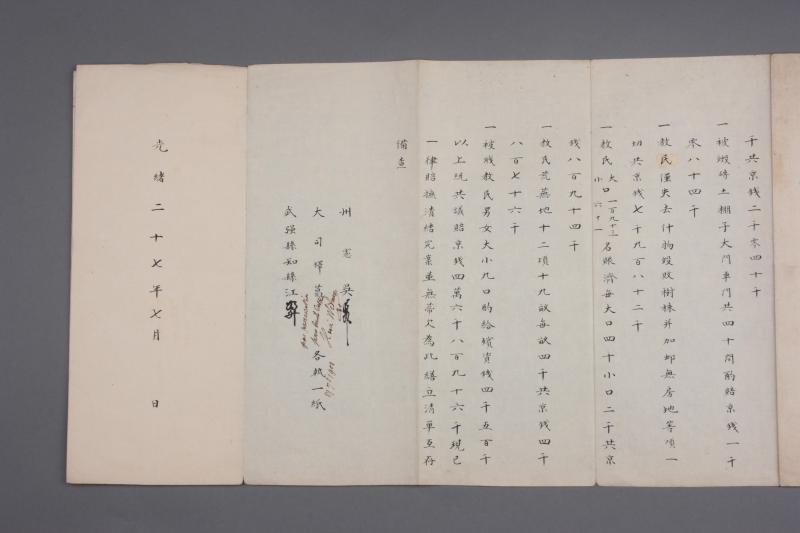 千共京錢二千零四十千
一被燬磚土棚子大門車門共四十間酌賠京錢一千
零八十四千
一教民僅失去什物毀敗樹株并加卹無房地等項一
切共京錢七千九百八十二千
一教民大口一百九十三小口六十一名賑濟每大口四十小口二千共京
錢八百九十四千
一教民荒蕪地十二項十九畝每畝四千共京錢四千
八百七十六千
一被戕教民男女大小九口酌給殯資錢四千五百千
以上統共議賠京錢四萬六千八百九十六千現已
一律賠撫清緒完案並無蒂欠為此繕立清單互存
備查
州憲吳
大司鐸葛 各執一紙
武强縣知縣江
光緒二十七年七月 日